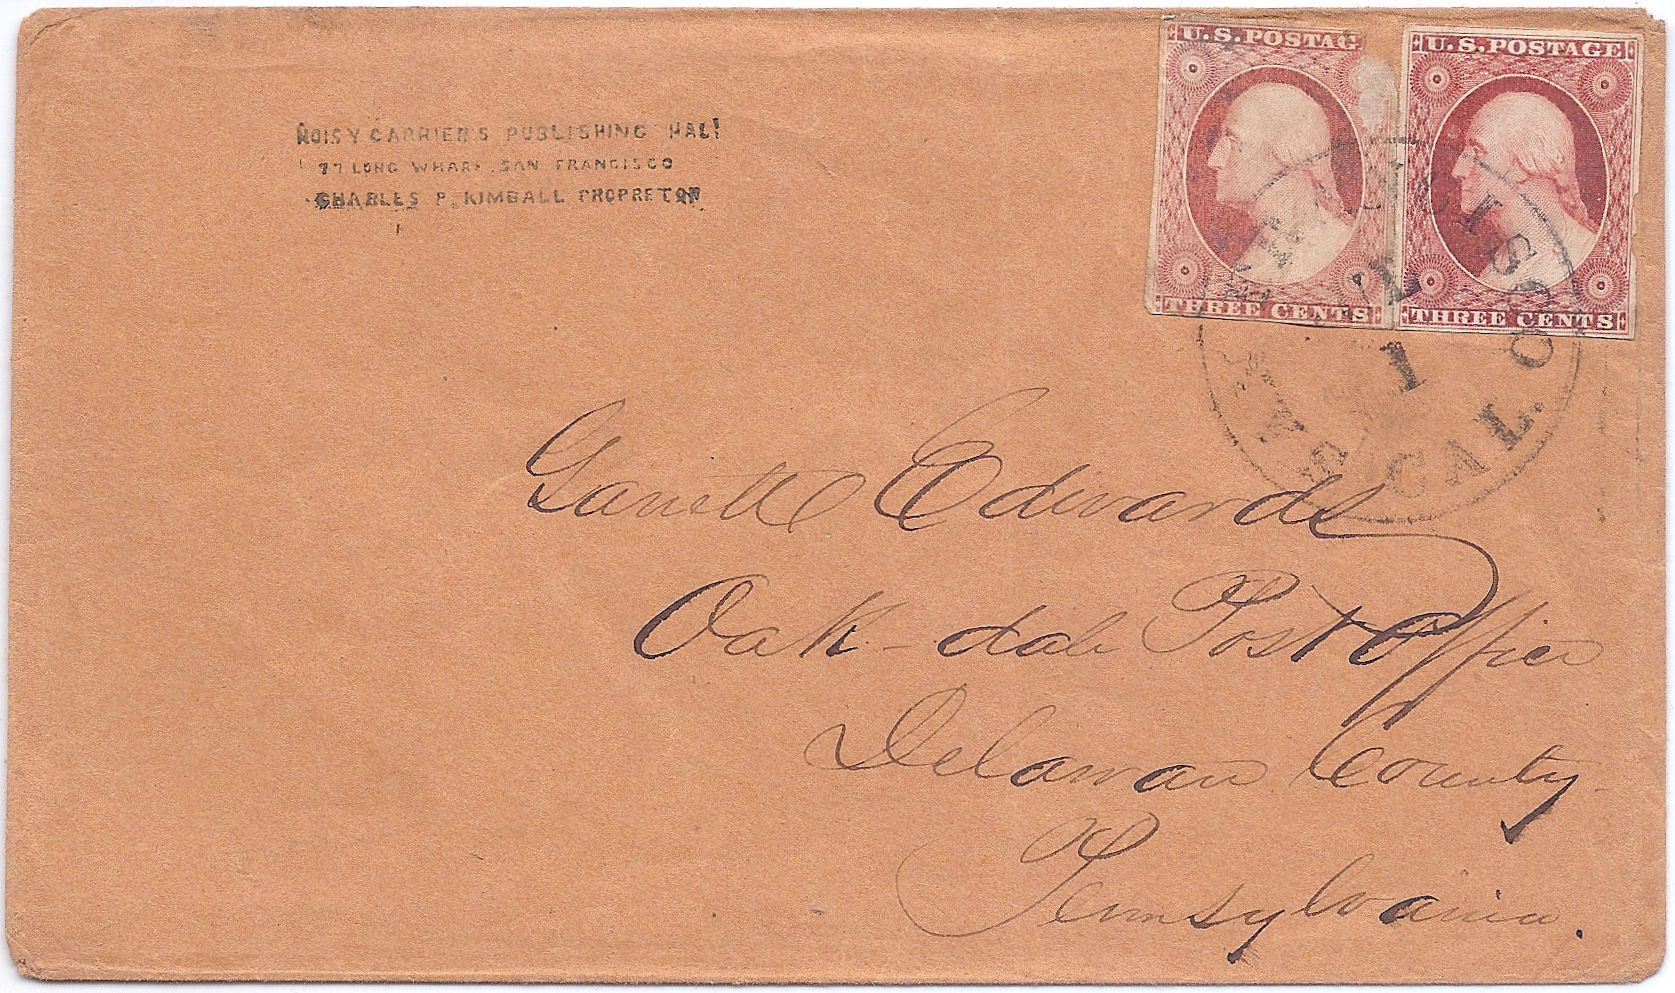 NOISY CARRIER'S PUBLISHING HALL
77 LONG WHARF, SAN FRANCISCO
CHARLES P. KIMBALL PROPRETOR
U.S. POSTAG
THREE CENTS
U.S. POSTAGE
THREE CENTS
SAN FRANCISCO CAL.
JUL
1
Garrett Edwards
Oak-dale Post Office
Delaware County
Pennsylvania.